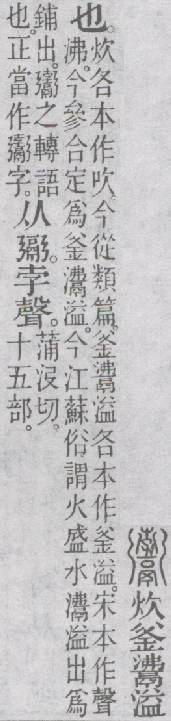 炊釜溢
也。
炊各本作吹。今從類篇。釜溢各本作釜溢。宋本作聲
沸。今參合定爲釜溢。今江蘇俗謂火盛水溢出爲
鋪出。之轉語
也。正當作字。
从。孛聲。
蒲沒切。
十五部。